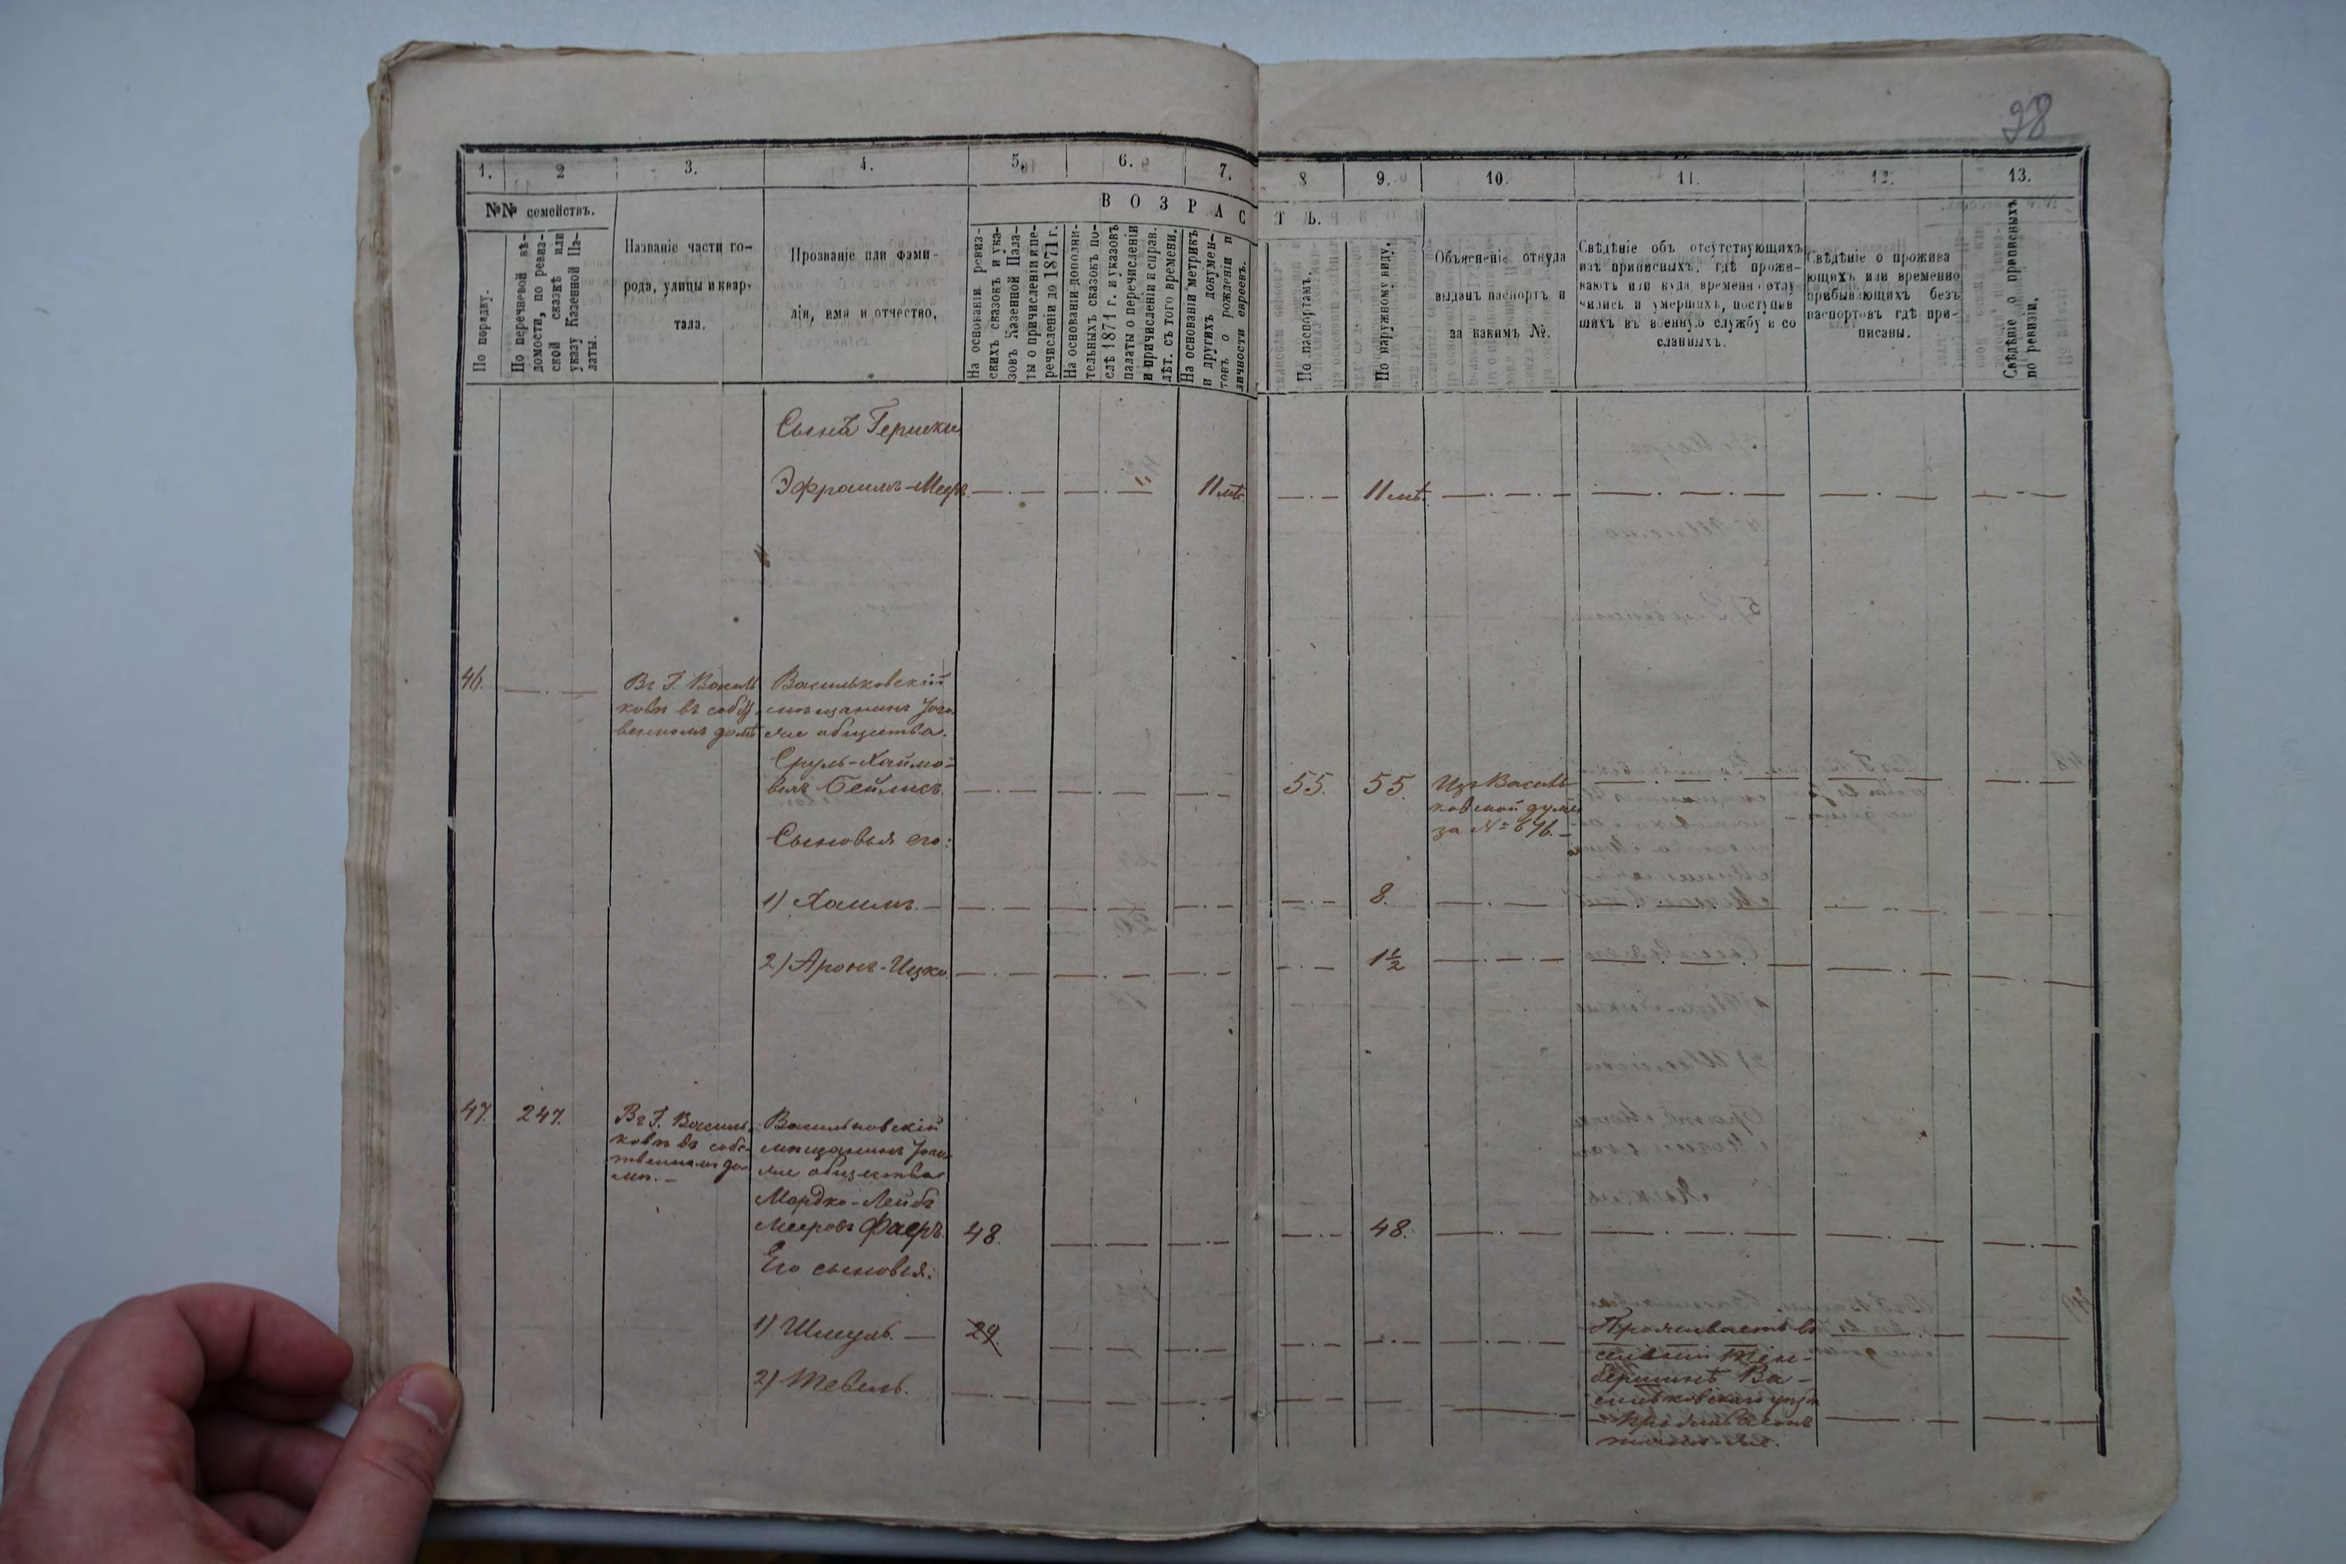 28
1. 2 3. 4. 5. 6. 7. 8 9. 10. 11. 12. 13.
№№ семействъ.
В О З Р А С Т Ъ.
По порядку.
По перечневой вѣ-
домости, по ревиз-
ской сказкѣ или
указу Казенной Па-
латы.
Названіе части го-
рода, улицы и квар-
тала.
Прозваніе или фами-
лія, имя и отчество.
На основаніи ревиз-
скихъ сказокъ и ука-
зовъ Казенной Пала-
ты о причисленіи и пе-
речисленіи до 1871 г.
На основаніи дополни-
тельныхъ сказокъ по-
слѣ 1871 г. и указовъ
палаты о перечисленіи
и причисленіи и справ.
лѣт. съ того времени.
На основаніи метрикъ
и другихъ докумен-
товъ о рожденіи и
личности евреевъ.
По паспортамъ.
По наружному виду.
Объясненіе откуда
выданъ паспортъ и
за какимъ №.
Свѣдѣніе объ отсутствующихъ
изъ приписныхъ, гдѣ прожи-
ваютъ или куда времен. отлу
чились и умершихъ, поступив
шихъ въ военную службу и со
сланныхъ.
Свѣдѣніе о прожива
ющихъ или временно
прибывающихъ безъ
паспортовъ гдѣ при-
писаны.
Свѣдѣніе о приписныхъ
по ревизіи.
Сынъ Гершки
Эфроимъ-Меер 11 лѣт. 11 лѣт.
46.
Въ Г. Василь
ковѣ въ собст
венномъ домѣ
Васильковскій
мѣщанинъ
общества.
Сруль-Хаймо-
вичъ Бейлисъ. 55. 55.
Изъ Василь
ковской думы
за № 676.
Сыновья его:
1) Хаимъ. 8.
2) Аронъ-Ицко. 1½
47. 247.
Въ Г. Василь
ковѣ въ собс-
твенномъ до-
мѣ.
Васильковскій
мѣщанинъ
общества
Мордко-Лейбъ
Мееровъ Фаеръ. 48. 48.
Его сыновья:
1) Шмуль. 29
2) Тевель.
Проживаетъ въ
Ва-
сильковскаго уѣзд